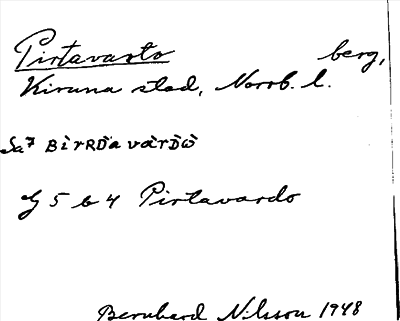 Pirtavarto berg,
Kiruna stad, Norrb. l.
BìrRDa vàrDὼ
G 5 b 4 Pirtavardo
Bernhard Nilsson 1948